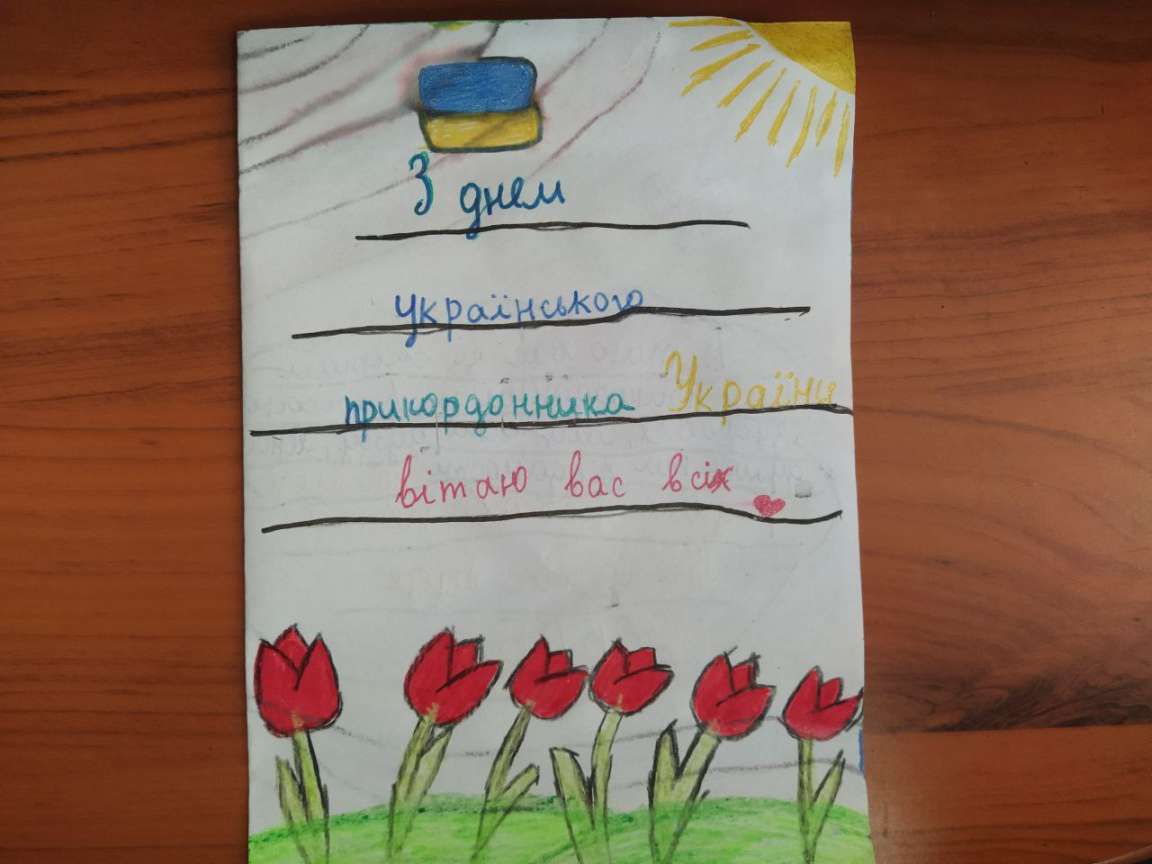 З днем
українського
прикордонника України
вітаю вас всіх